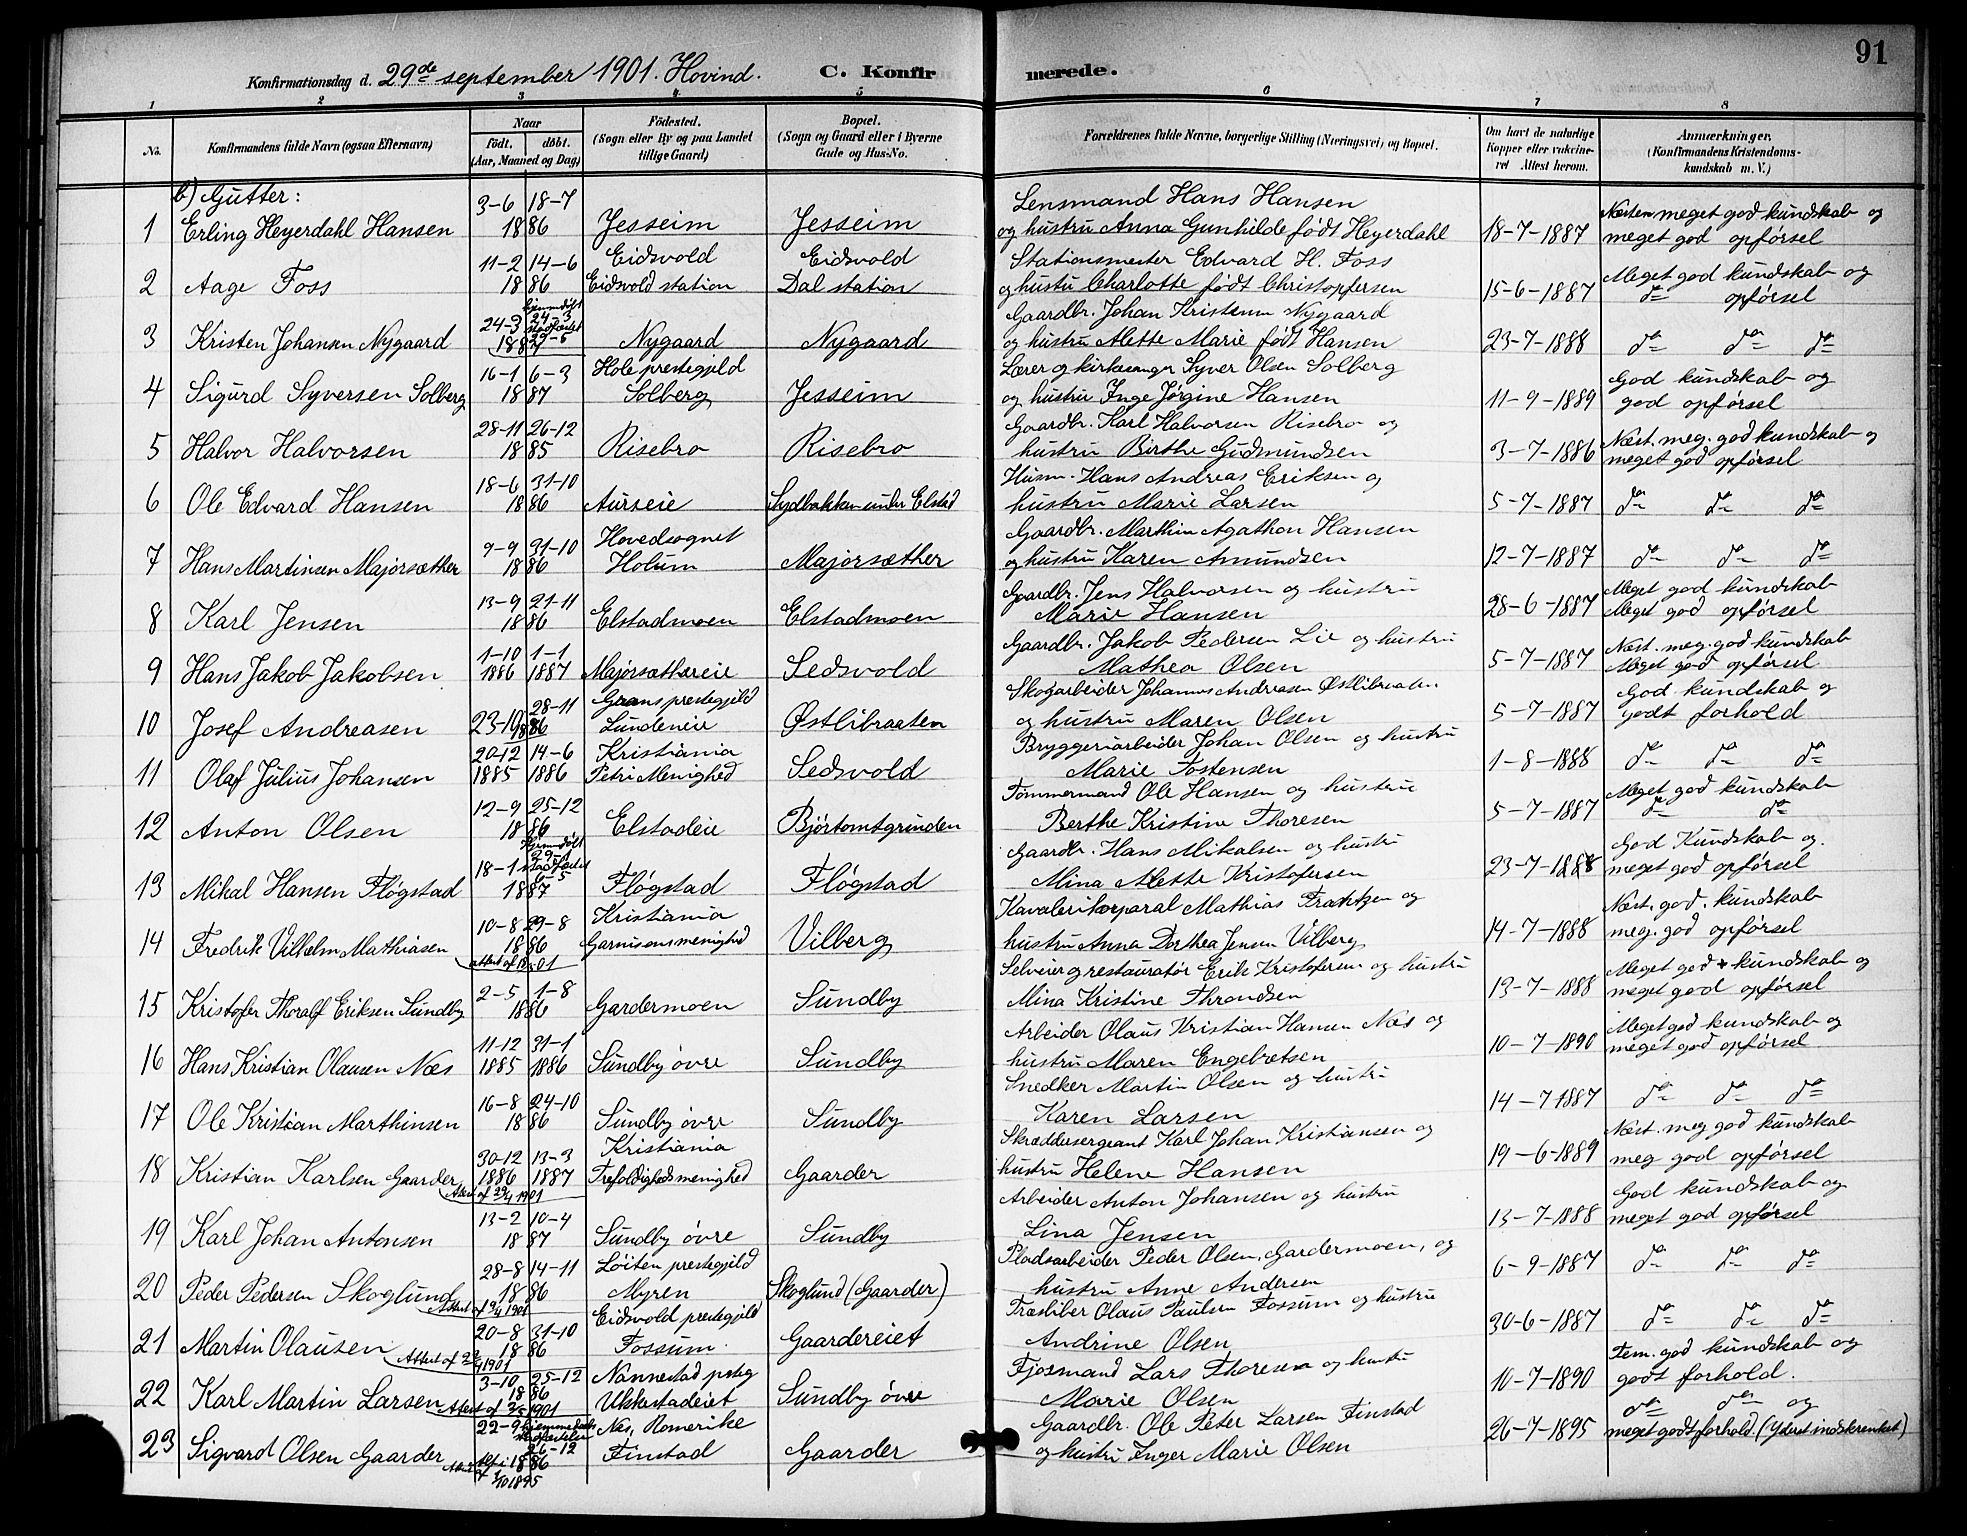 91
Konfirmationsdag d. 29de september 1901. Hovind. C. Konfirmerede.
1 2 3 4 5 6 7 8
No. Konfirmandens fulde Navn (ogsaa Efternavn) Naar født. døbt. (Aar, Maaned og Dag) Fødested. (Sogn eller By og paa Landet tillige Gaard) Bopæl. (Sogn og Gaard eller i Byerne Gade og Hus-No. Forældrenes fulde Navne, borgerlige Stilling (Næringsvei) og Bopæl. Om havt de naturlige Kopper eller vakcineret Attest herom. Anmærkninger. (Konfirmandens Kristendomskundskab m. V.)
b) Gutter:
3-6 18-7 Lensmand Hans Hansen Næsten meget god kundskab og
1 Erling Heyerdahl Hansen 1886 Jesseim Jesseim og hustru Anna Gunhilde født Heyerdahl 18-7-1887 meget god opførsel
11-2 14-6 Eidsvold Eidsvold Stationsmester Edvard H. Foss Meget god kundskab og
2 Aage Foss 1886 Eidsvold station Dal station og hustru Charlotte født Christopfersen 15-6-1887 do opførsel
24-3 hjemmedøbt 24-3 stadfæstet 29-6 Gaardbr. Johan Kristenn Nygaard
3 Kristen Johansen Nygaard 1887 Nygaard Nygaard og hustru Alette Marie født Hansen 23-7-1888 do do do
16-1 6-3 Hole prestegjeld Lærer og kirkesanger Syver Olsen Solberg God kundskab og
4 Sigurd Syversen Solberg 1887 Solberg Jesseim og hustru Inge Jørgine Hansen 11-9-1889 god opførsel
28-11 26-12 Gaardbr. Karl Halvorsen Risebro og Næst. meg. god kundskab og
5 Halvor Halvorsen 1885 Risebro Risebro hustru Birthe Gudmundsen 3-7-1886 meget god opførsel
18-6 31-10 Husm. Hans Andreas Eriksen og
6 Ole Edvard Hansen 1886 Aurseie Sydbakken under Elstad hustru Marie Larsen 5-7-1887 do do do
9-9 31-10 Hovedsognet Gaardbr. Marthin Agathon Hansen
7 Hans Martinsen Majorsæther 1886 Holum Majorsæther og hustru Karen Amundsen 12-7-1887 do do do
13-9 21-11 Gaardbr. Jens Halvorsen og hustru Meget god kundskab
8 Karl Jensen 1886 Elstadmoen Elstadmoen Marie Hansen 28-6-1887 Meget god opførsel
1-10 1-1 Gaardbr. Jakob Pedersen Lie og hustru Næst. meg. god kundskab
9 Hans Jakob Jakobsen 1886 1887 Majorsæthereie Sedsvold Mathea Olsen 5-7-1887 Meget god opførsel
28-11 Grans prestegjeld Skogarbeider Johannes Andreasen Østlibraaten God kundskab og
10 Josef Andreasen 23-10 1886 Lundeneie Østlibraaten og hustru Maren Olsen 5-7-1887 godt forhold
20-12 14-6 Kristiania Bryggeriarbeider Johan Olsen og hustru
11 Olaf Julius Johansen 1885 1886 Petri Menighed Sedsvold Marie Tostensen 1-8-1888 do do do
12-9 25-12 Tømmermand Ole Hansen og hustru Meget god kundskab
12 Anton Olsen 1886 Elstadeie Bjørtomtgrinden Berthe Kristine Thoresen 5-7-1887 do do
18-1 Hjemmedøbt stadfæstet 6-5 Gaardbr. Hans Mikalsen og hustru God Kundskab og.
13 Mikal Hansen Fløgstad 1887 Fløgstad Fløgstad Mina Alette Kristofersen 23-7-1888 meget god opførsel
10-8 29-8 Kristiania Kavalerikorporal Mathias Frantzen og Næst. god. kundskab
14 Fredrik Vilhelm Mathiasen 1886 Garnisonsmenighed Vilberg hustru Anna Dorthea Jensen Vilberg 14-7-1888 meg. god opførsel
2-5 1-8 Selveier og restauratør Erik Kristofersen og hustru Meget god kundskab og
15 Kristofer Thoralf Eriksen Sundby 1886 Gardermoen Sundby Mina Kristine Throndsen 13-7-1888 meget god opførsel
11-12 31-1 Arbeider Olaus Kristian Hansen Næs og Meget god kundskab og
16 Hans Kristian Olausen Næs 1885 1886 Sundby øvre Sundby hustru Maren Engebretsen 10-7-1890 meget god opførsel
16-8 24-10 Snedker Martin Olsen og hustru
17 Ole Kristian Marthinsen 1886 Sundby øvre Sundby Karen Larsen 14-7 1887 do do do
30-12 13-3 Kristiania Skræddersergeant Karl Johan Kristiansen og Næst. meg god kundskab
18 Kristian Karlsen Gaarder 1886 1887 Trefoldighedsmenighed Gaarder hustru Helene Hansen 19-6-1889 meg god opførsel
13-2 10-4 Arbeider Anton Johansen og hustru God kundskab og
19 Karl Johan Antonsen 1887 Sundby øvre Sundby Lina Jensen 13-7-1888 meget god opførsel
28-8 14-11 Løiten prestegjeld Pladsarbeider Peder Olsen, Gardermoen, og
20 Peder Pedersen Skoglund 1886 Myren Skoglund (Gaarder) hustru Anne Andersen 6-9-1887 do do do
20-8 31-10 Eidsvold prestegjeld Træsliber Olaus Paulsen Fossum og hustru
21 Martin Olausen 1886 Fossum Gaardereiet Andrine Olsen 30-6-1887 do do do
3-10 25-12 Nannestad prstg Fjøsmand Lars Thoresen og hustru Tem. god kundskab og
22 Karl Martin Larsen 1886 Ukkestadeiet Sundby øvre Marie Olsen 10-7-1890 godt forhold.
22-9 26-12 Nes, Romerike Gaardbr. Ole Peter Larsen Finstad do do og
23 Sigvard Olsen Gaarder 1886 Finstad Gaarder og hustru Inger Marie Olsen 26-7-1895 meget godt forhold. (Yderst indskrenket)